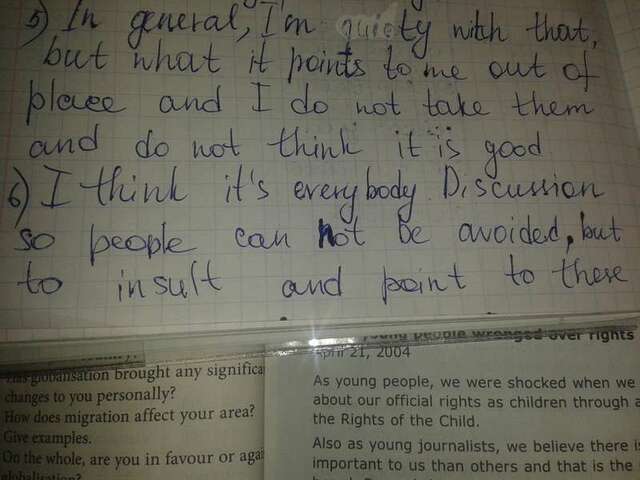 5) In general, I'm quiety with that,
but what it points to me out of
place and I do not take them
and do not think it is good
6) I think it's everybody. Discussion
so people can not be avoided, but
to insult and point to there
brought any significa
changes to you personally?
How does migration affect your area?
Give examples.
On the whole, are you in favour or agai
April 21, 2004
young people wronged over rights
As young people, we were shocked when we
about our official rights as children through a
the Rights of the Child.
Also as young journalists, we believe there i
important to us than others and that is the